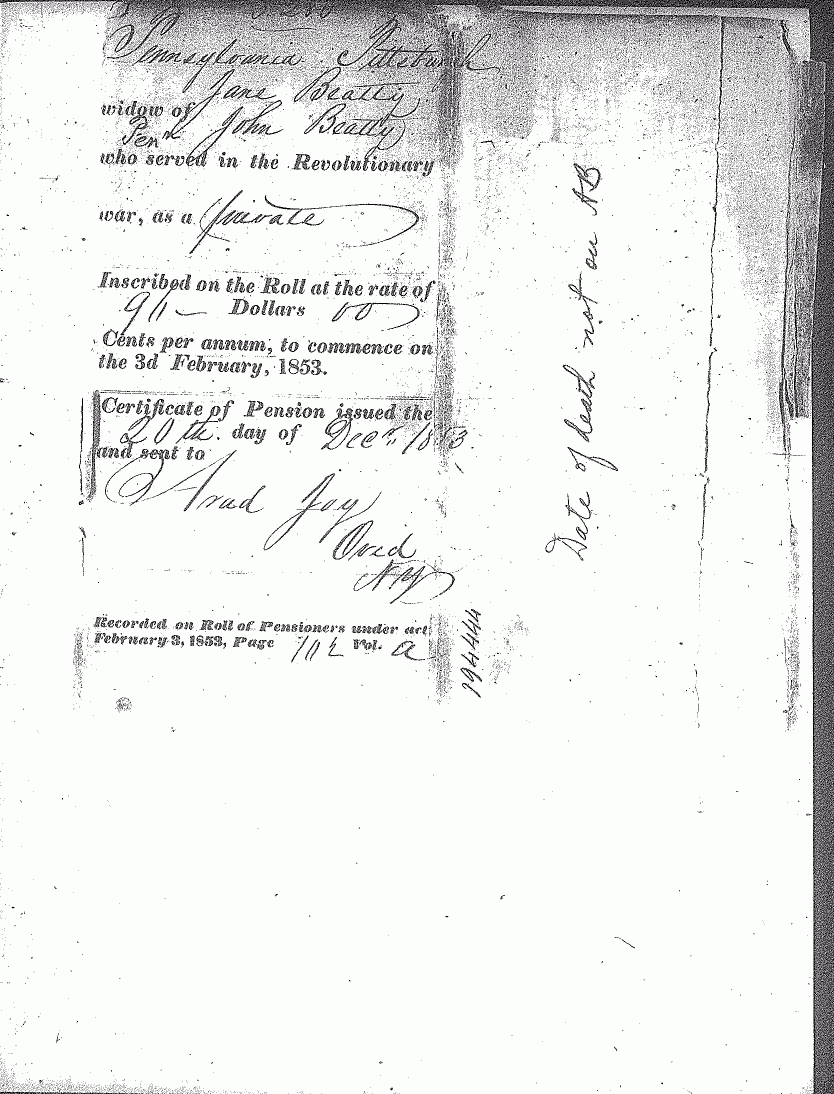 Pennsylvania Pittsburgh
Jane Beatty
widow of
John Beatty
who served in the Revolutionary
war, as a private
Inscribed on the Roll at the rate of
Dollars 00
Cents per annum, to commence on
the 3d February, 1853.
Certificate of Pension issued the
20th. day of Decr. 1853.
and sent to
Arad Joy
Ovid
N.Y.
Recorded on Roll of Pensioners under act
February 3, 1853, Page Vol. A
194444
Date of death not on AB